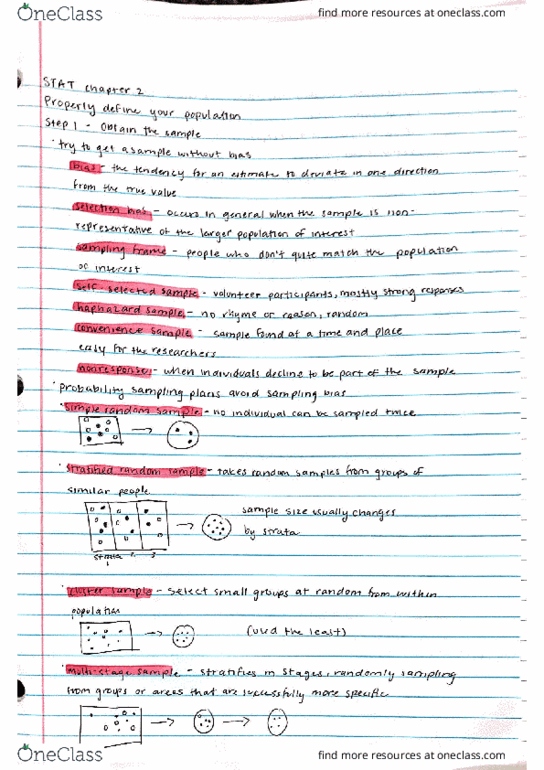 OneClass
find more resources at oneclass.com
STAT chapter 2
Properly define your population
Step 1 - Obtain the sample
· try to get a sample without bias
bias - the tendency for an estimate to deviate in one direction
from the true value
selection bias - occurs in general when the sample is non-
representative of the larger population of interest
sampling frame - people who don't quite match the population
of interest
self selected sample - volunteer participants, mostly strong responses
haphazard sample - no rhyme or reason, random
convenience sample - sample found at a time and place
easy for the researchers
nonresponse - when individuals decline to be part of the sample
· probability sampling plans avoid sampling bias
· simple random sample - no individual can be sampled twice
· stratified random sample - takes random samples from groups of
similar people
sample size usually changes
by strata
strata 2 3
1
· cluster sample - select small groups at random from within
population
(used the least)
· multi-stage sample - stratifies in stages, randomly sampling
from groups or areas that are successfully more specific
OneClass
find more resources at oneclass.com